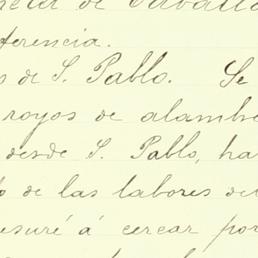 de
ferencia.
s de S. Pablo. Se
royos de alambre
desde S. Pablo, ha
o de las labores de
esuré á cercar por